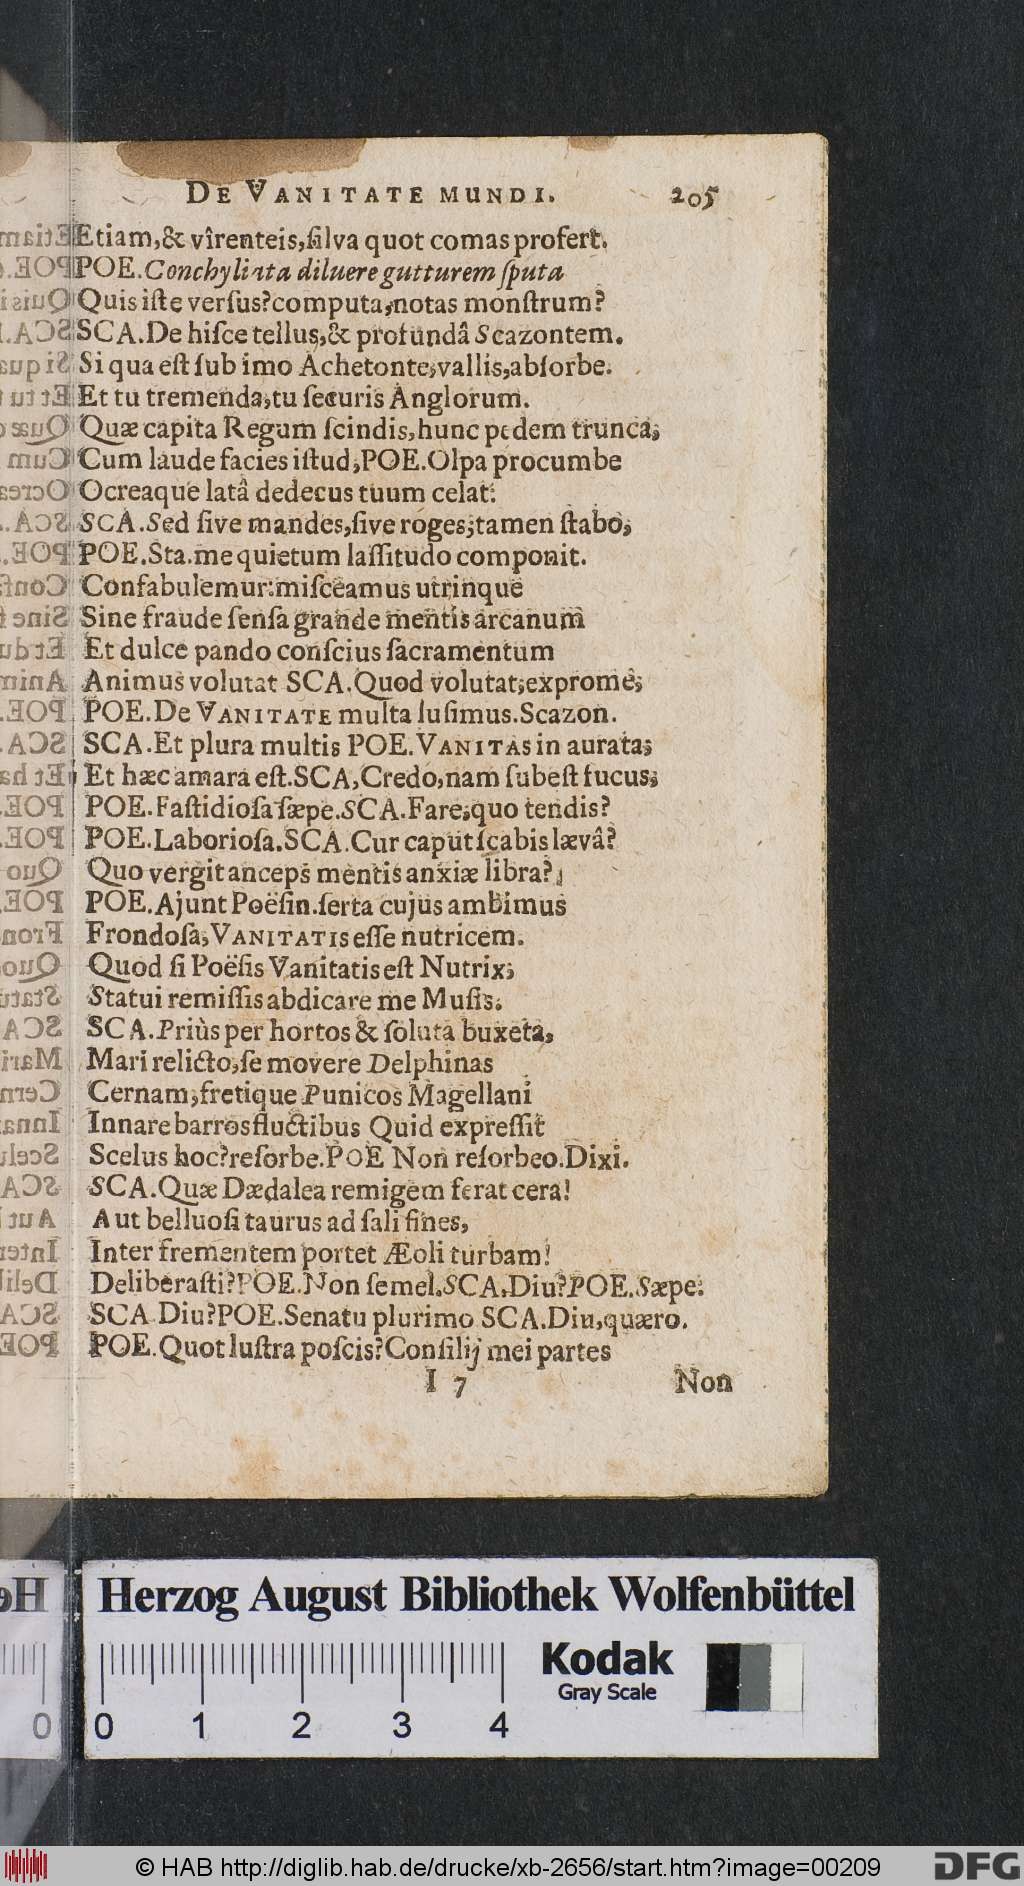 DE VANITATE MUNDI. 205
Etiam,& vîrenteis,ſilva quot comas profert.
POE.Conchyliata diluere gutturem ſputa
Quis iſte verſus?computa,notas monſtrum?
SCA.De hiſce tellus,& profundâ Scazontem.
Si qua eſt ſub imo Achetonte,vallis,abſorbe.
Et tu tremenda,tu ſecuris Anglorum.
Quæ capita Regum ſcindis,hunc pedem trunca,
Cum laude facies iſtud,POE.Olpa procumbe
Ocreaque latâ dedecus tuum celat.
SCA.Sed ſive mandes,ſive roges,tamen ſtabo,
POE.Sta.me quietum laſſitudo componit.
Confabulemur:miſceamus utrinque
Sine fraude ſenſa grande mentis arcanum
Et dulce pando conſcius ſacramentum
Animus volutat SCA.Quod volutat,exprome,
POE.De VANITATE multa luſimus.Scazon.
SCA.Et plura multis POE.VANITAS in aurata,
Et hæc amara eſt.SCA,Credo,nam ſubeſt fucus,
POE.Faſtidioſa ſæpe.SCA.Fare,quo tendis?
POE.Laborioſa.SCA.Cur caput ſcabis lævâ?
Quo vergit anceps mentis anxiæ libra?
POE.Ajunt Poëſin.ſerta cujus ambimus
Frondoſa,VANITATIS eſſe nutricem.
Quod ſi Poëſis Vanitatis eſt Nutrix,
Statui remiſſis abdicare me Muſis.
SCA.Priùs per hortos & ſoluta buxeta,
Mari relicto,ſe movere Delphinas
Cernam,fretique Punicos Magellani
Innare barros fluctibus Quid expreſſit
Scelus hoc?reſorbe.POE Non reſorbeo.Dixi.
SCA.Quæ Dædalea remigem ferat cera!
Aut belluoſi taurus ad ſali fines,
Inter frementem portet Æoli turbam!
Deliberaſti?POE.Non ſemel.SCA.Diu?POE.Sæpe.
SCA Diu?POE.Senatu plurimo SCA.Diu,quæro.
POE.Quot luſtra poſcis?Conſilij mei partes
I 7 Non
Herzog August Bibliothek Wolfenbüttel
Kodak
Gray Scale
0 0 1 2 3 4
© HAB http://diglib.hab.de/drucke/xb-2656/start.htm?image=00209 DFG